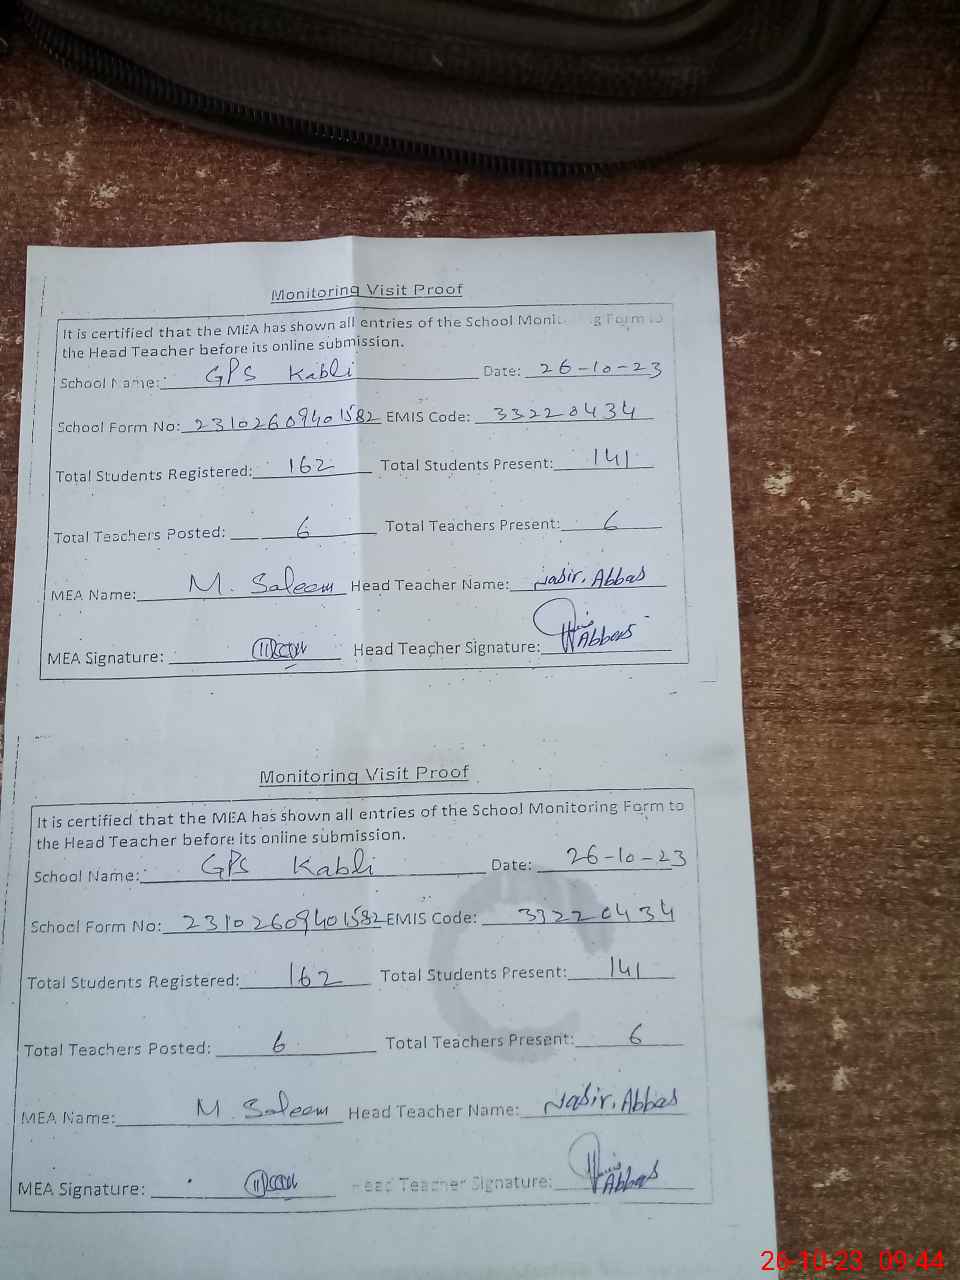 Monitoring Visit Proof
It is certified that the MEA has shown all entries of the School Monitoring Form to
the Head Teacher before its online submission.
School Name: GPS Kabli Date: 26-10-23
School Form No: 2310260940 1582 EMIS Code: 33220434
Total Students Registered: 162 Total Students Present: 141
Total Teachers Posted: 6 Total Teachers Present: 6
MEA Name: M. Saleem Head Teacher Name: Nasir. Abbas
MEA Signature: Head Teacher Signature: Abbas
Monitoring Visit Proof
It is certified that the MEA has shown all entries of the School Monitoring Form to
the Head Teacher before its online submission.
School Name: GPS Kabli Date: 26-10-23
School Form No: 2310260940 1582 EMIS Code: 33220434
Total Students Registered: 162 Total Students Present: 141
Total Teachers Posted: 6 Total Teachers Present: 6
MEA Name: M. Saleem Head Teacher Name: Nasir. Abbas
MEA Signature: Head Teacher Signature: Abbas
26-10-23 09:44